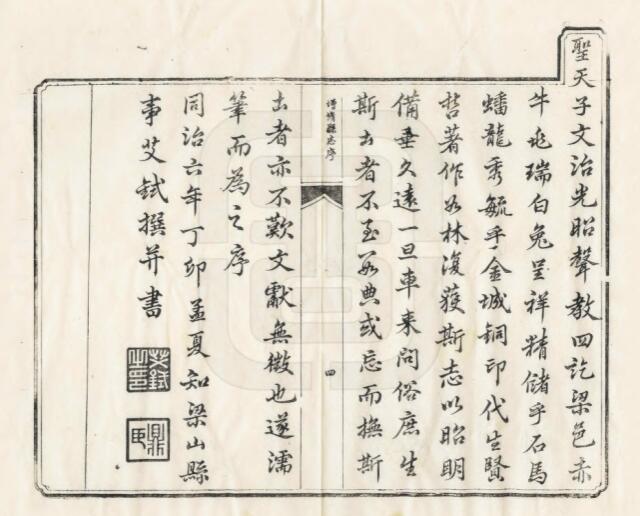 聖天子文治光昭聲教四訖梁邑赤
牛兆瑞白兔呈祥精儲乎石馬
蟠龍秀毓乎金城銅印代生賢
哲著作如林復獲斯志以昭明
備垂久遠一旦車來問俗庶生
斯土者不至數典或忘而撫斯
增修縣志序
四
土者亦不歎文獻無徵也遂濡
筆而為之序
同治六年丁卯孟夏知梁山縣
事艾鉽撰并書